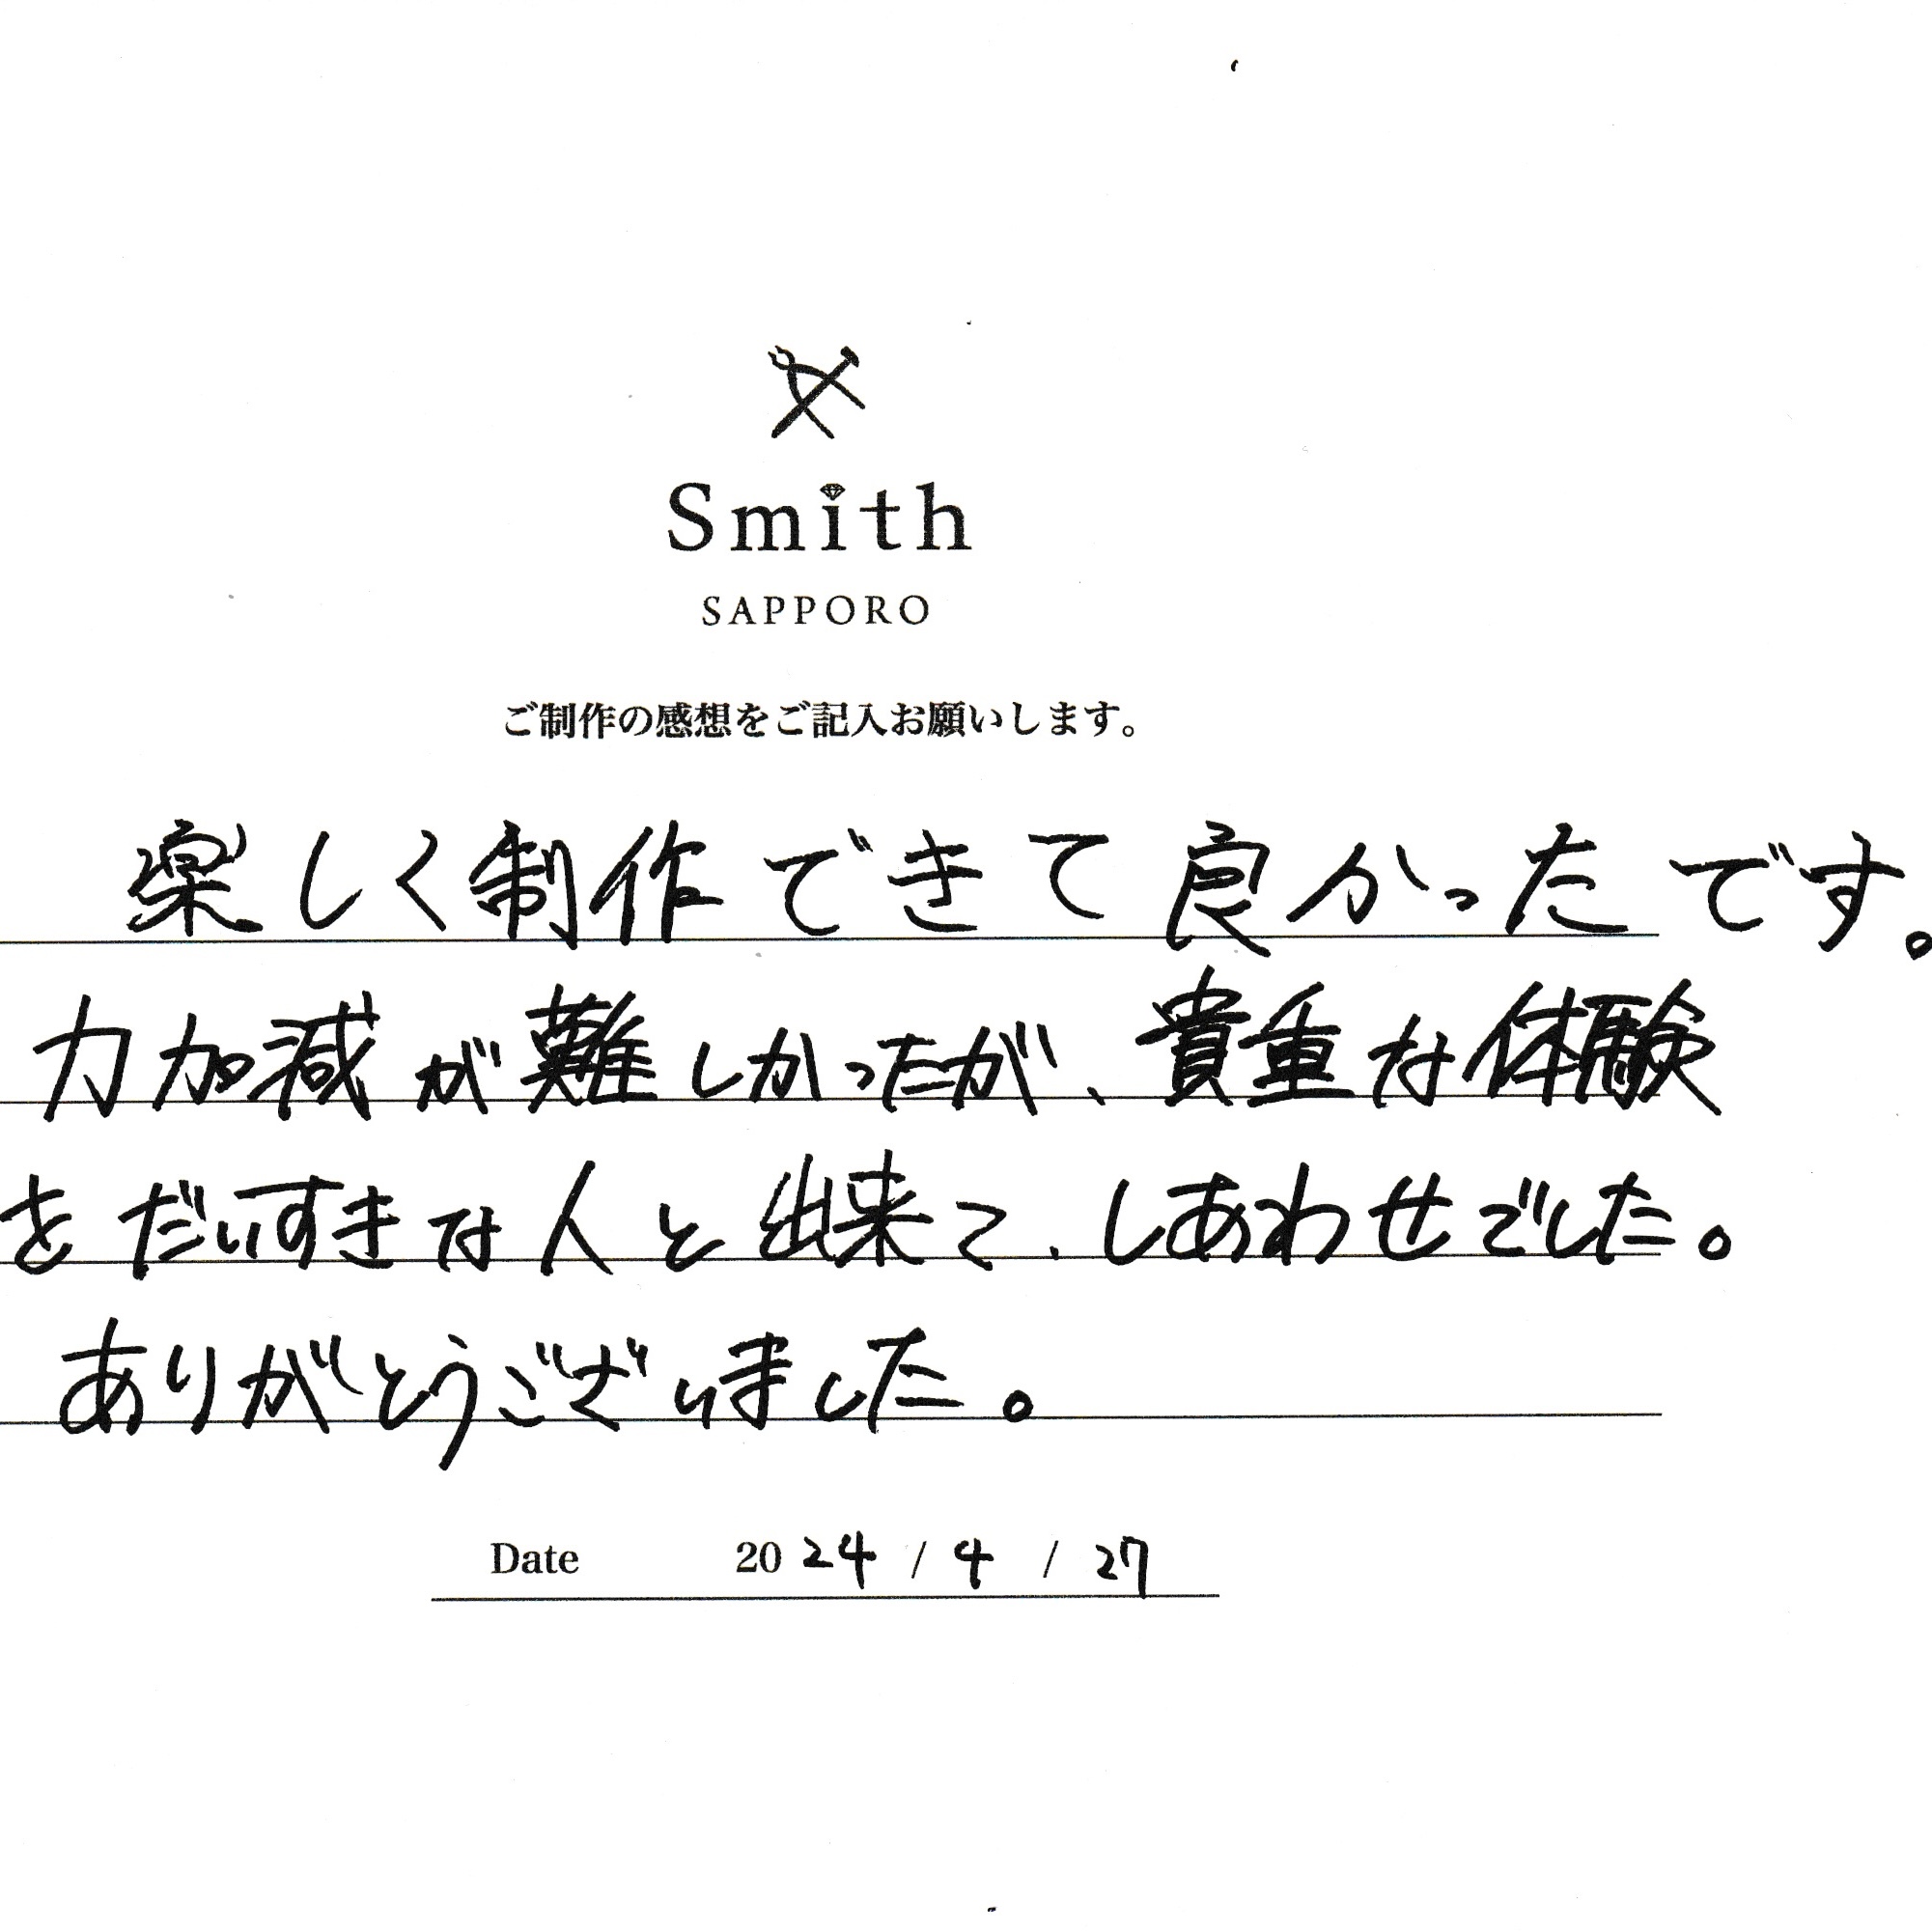 Smith
SAPPORO
ご制作の感想をご記入お願いします。
楽しく制作できて良かったです。
力加減が難しかったが、貴重な体験
をだいすきな人と出来て、しあわせでした。
ありがとうございました。
Date 2024 / 4 / 27